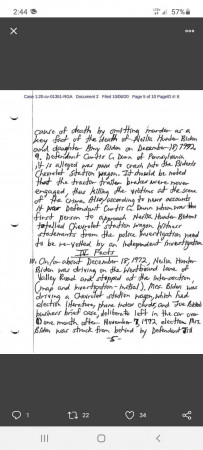 2:44
57%
Case 1:20-cv-01361-RGA Document 2 Filed 10/06/20 Page 5 of 10 PageID #: 8
cause of death by omitting murder as a
key part of the death of Neilia Hunter Biden
and daughter Amy Biden on December 18, 1972
9. Defendant Curtis C. Dunn of Pennsylvania
it is alleged was to crash into the Biden's
Chevrolet Station wagon. It should be noted
that the tractor trailer brakes were never
engaged, thus killing the victims at the scene
of the crime. Also according to news accounts
it was Defendant Curtis C. Dunn whom was the
first person to approach Neilia Hunter Biden's
totalled Chevrolet Station wagon. Witness
statements from the police investigation need
to be re-visited by an independent investigation
IV. Facts
10. On/or about December 18, 1972, Neilia Hunter
Biden was driving on the Westbound lane of
Valley Road and stopped at the intersection,
(map and investigation - initial), Mrs. Biden was
driving a Chevrolet Station wagon, which had
election literature, phone index cards, and Joe Biden's
business brief case, deliberate left in the car over
one month after November 7, 1972 election. Mrs.
Biden was struck from behind by Defendant
-5-
1
22
34